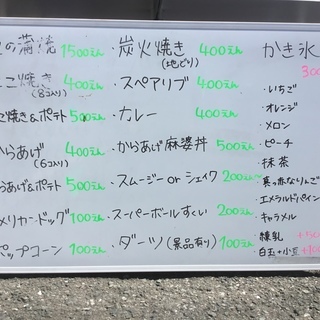 の蒲焼 1500えん
こ焼き 400えん
(8コ入り)
こ焼き&ポテト 500えん
からあげ 400えん
(6コ入り)
らあげ&ポテト 500えん
メリカンドッグ 100えん
ップコーン 100えん
・炭火焼き 400えん
(地どり)
・スペアリブ 400えん
・カレー 400えん
・からあげ麻婆丼 500えん
・スムージー or シェイク 200えん〜
・スーパーボールすくい 200えん
・ダーツ(景品有り) 100えん
かき氷
300
・いちご
・オレンジ
・メロン
・ピーチ
・抹茶
・真っ赤なりんご
・エメラルドパイン
・キャラメル
・練乳 +50
・白玉+小豆 +100